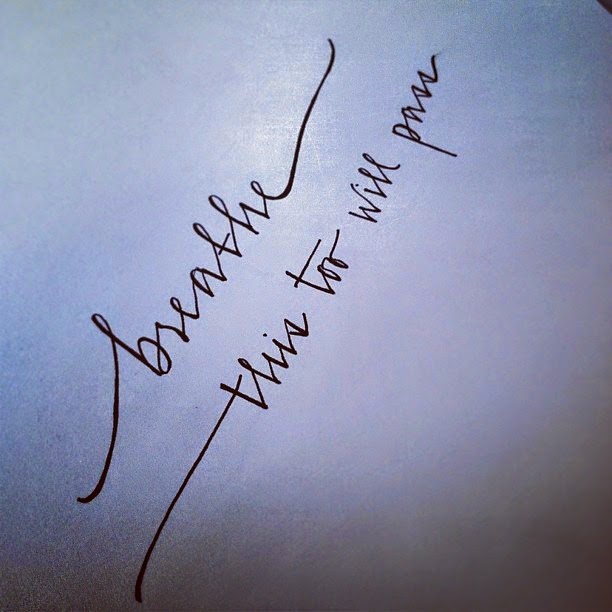 breathe
this too will pass